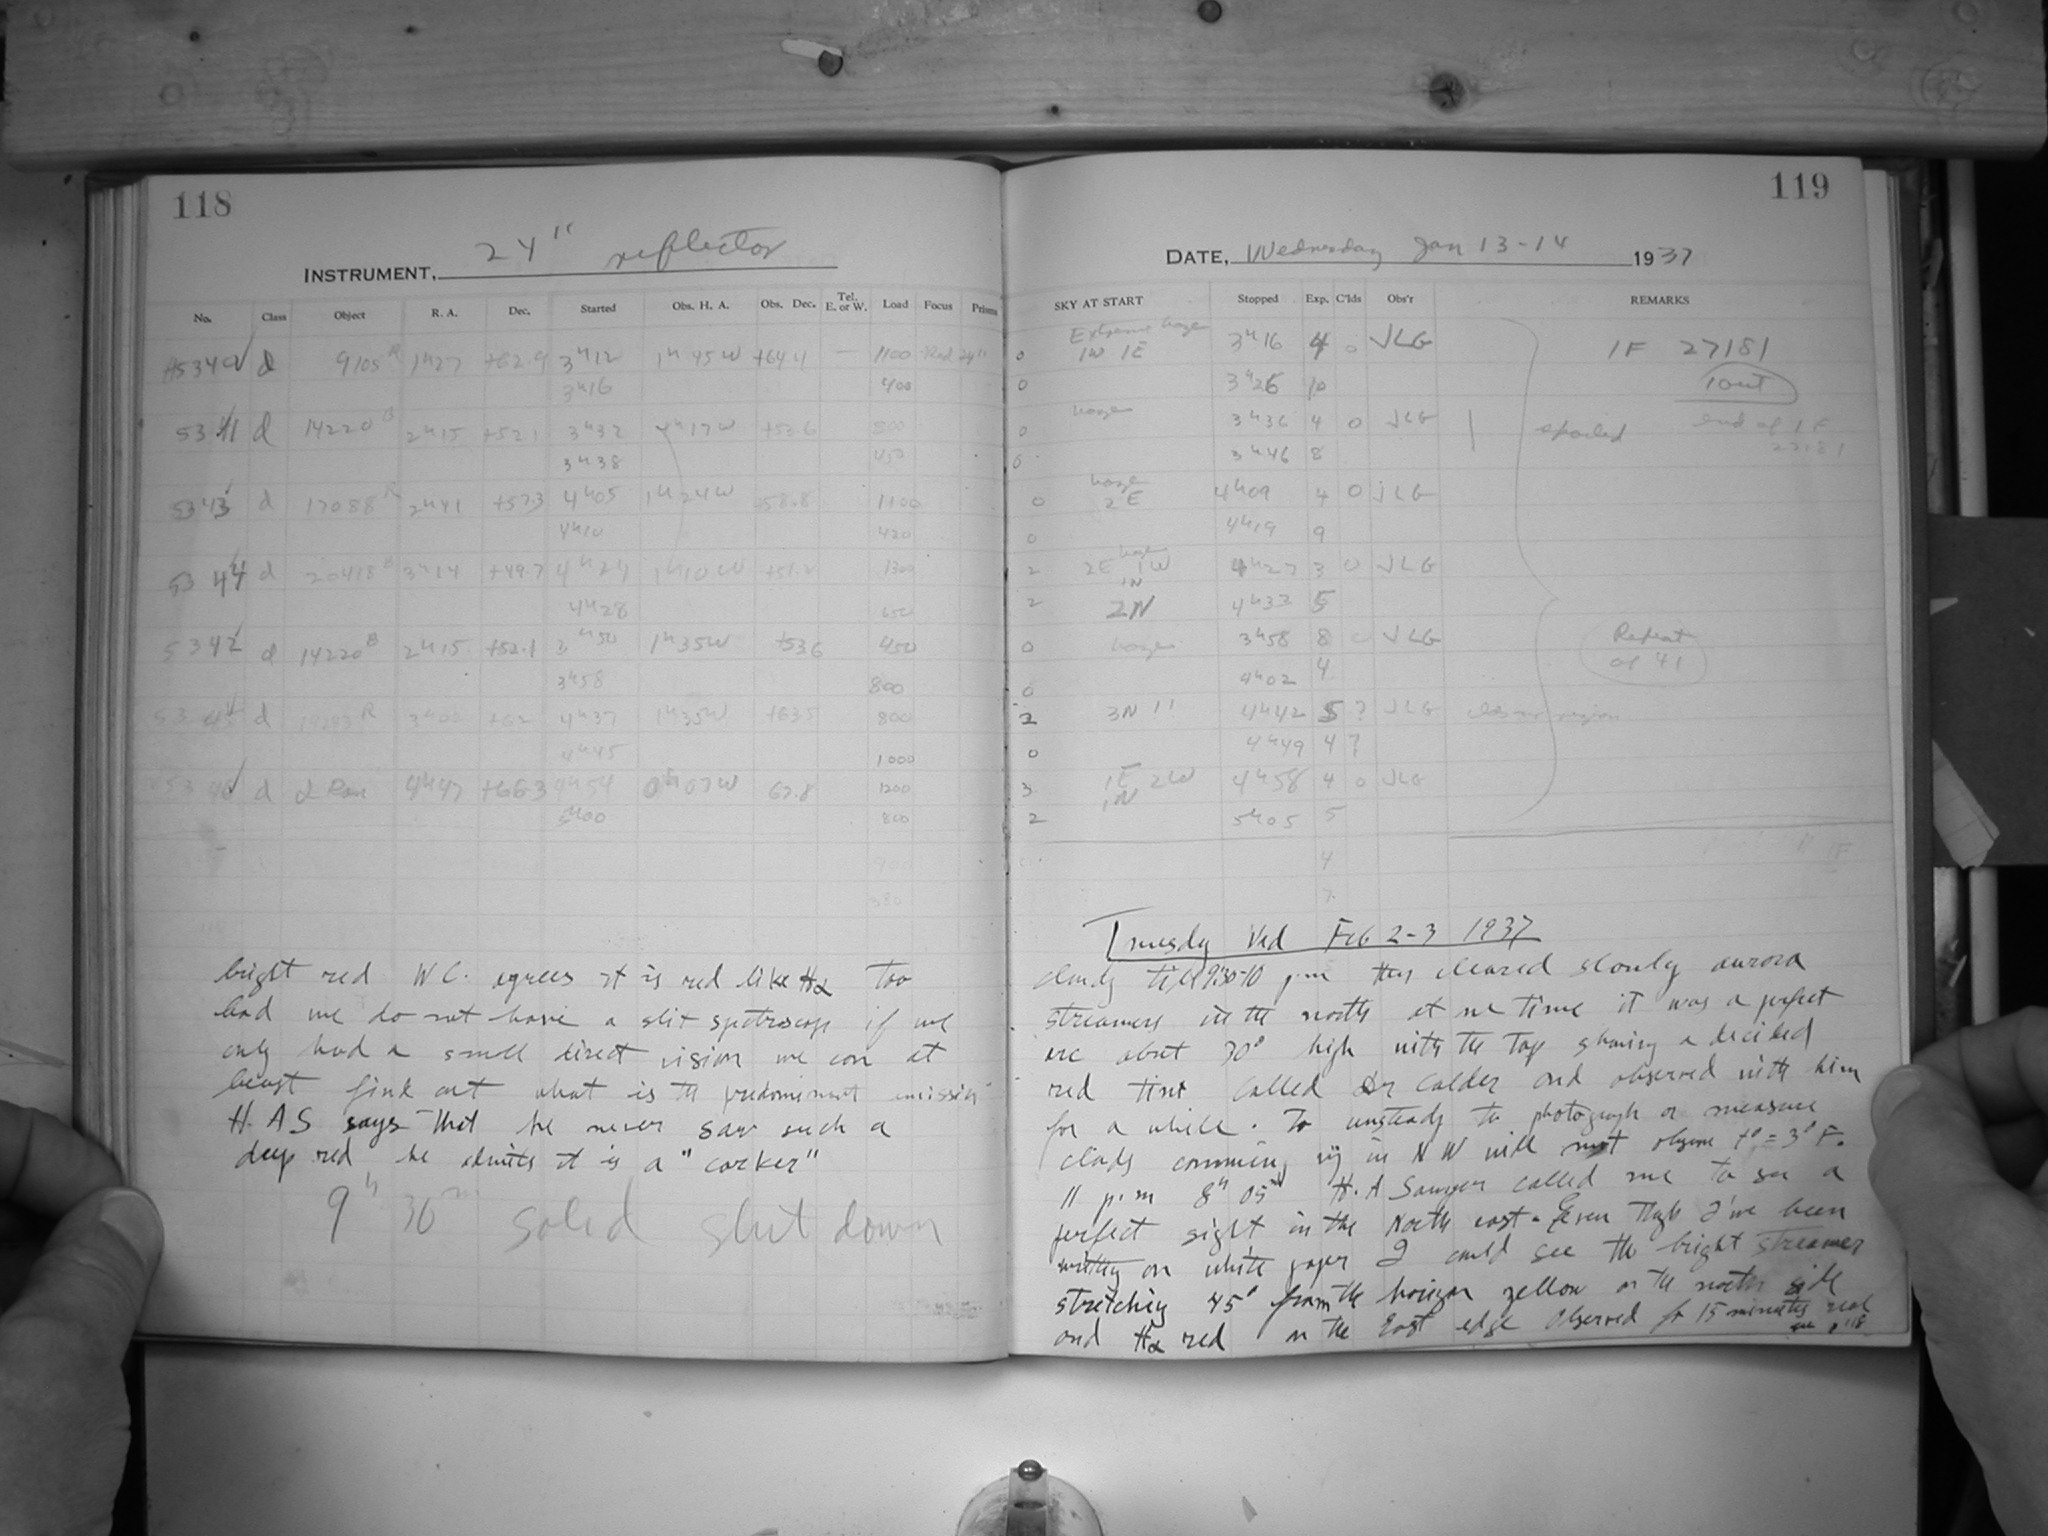 118
INSTRUMENT, 24" reflector
No. Class Object R. A. Dec. Started Obs. H. A. Obs. Dec. Tel. E. or W. Load Focus Prisms
H5340 d 9105 R 1h27 +62.9 3h12 1h45W +64.1 — 1100 Red 24"
3h16 400
5341 d 14220 B 2h15 +52.1 3h32 1h17W +53.6 800
3h38 450
5343 d 17088 R 2h41 +57.3 4h05 1h24W 58.8 1100
4h10 420
5344 d 20418 B 3h14 +49.7 4h24 1h10W +51.2 1300
4h28 650
5342 d 14220 B 2h15 +52.1 3h50 1h35W +53.6 450
3h58 800
5345 d R 3h00 +62 4h37 1h35W +63.5 800
4h45 1000
5346 d 4h47 +66.3 4h54 0h07W 67.8 1200
5h00 800
400
380
bright red WC. agrees it is red like Hα Too
bad we do not have a slit spectroscope if we
only had a small direct vision we can at
least find out what is the predominant emission
H. A S says that he never saw such a
deep red he admits it is a "corker"
9h 30m solid shut down
119
DATE, Wednesday Jan 13-14 1937
SKY AT START Stopped Exp. C'lds Obs'r REMARKS
0 Extreme haze 1W 1E 3h16 4 0 JLG 1F 27181
0 3h26 10 1 out
0 haze 3h36 4 0 JLG spoiled end of 1F 27181
0 3h46 8
0 haze 2E 4h09 4 0 JLG
0 4h19 9
2 haze 2E 1W 1N 4h27 3 0 JLG
2 2N 4h33 5
0 haze 3h58 8 0 JLG Repeat of 41
0 4h02 4
2 3N !! 4h42 5 ? JLG
0 4h49 4 ?
3 1E 2W 1N 4h58 4 0 JLG
2 5h05 5
4
7
Tuesdy Wed Feb 2-3 1937
Cloudy till 9:30-10 p.m then cleared slowly aurora
streamers in the north at one time it was a perfect
arc about 30° high with the top showing a decided
red tint Called Dr Calder and observed with him
for a while. To unsteady to photograph or measure
clouds comming up in N W will not observe t° = 3° F.
11 p.m 8h 05m H. A Sawyer called me to see a
perfect sight in the North east. Even though I've been
writing on white paper I could see the bright streamer
stretching 45° from the horizon yellow on the north side
and Hα red on the East edge Observed for 15 minutes real
see p 118